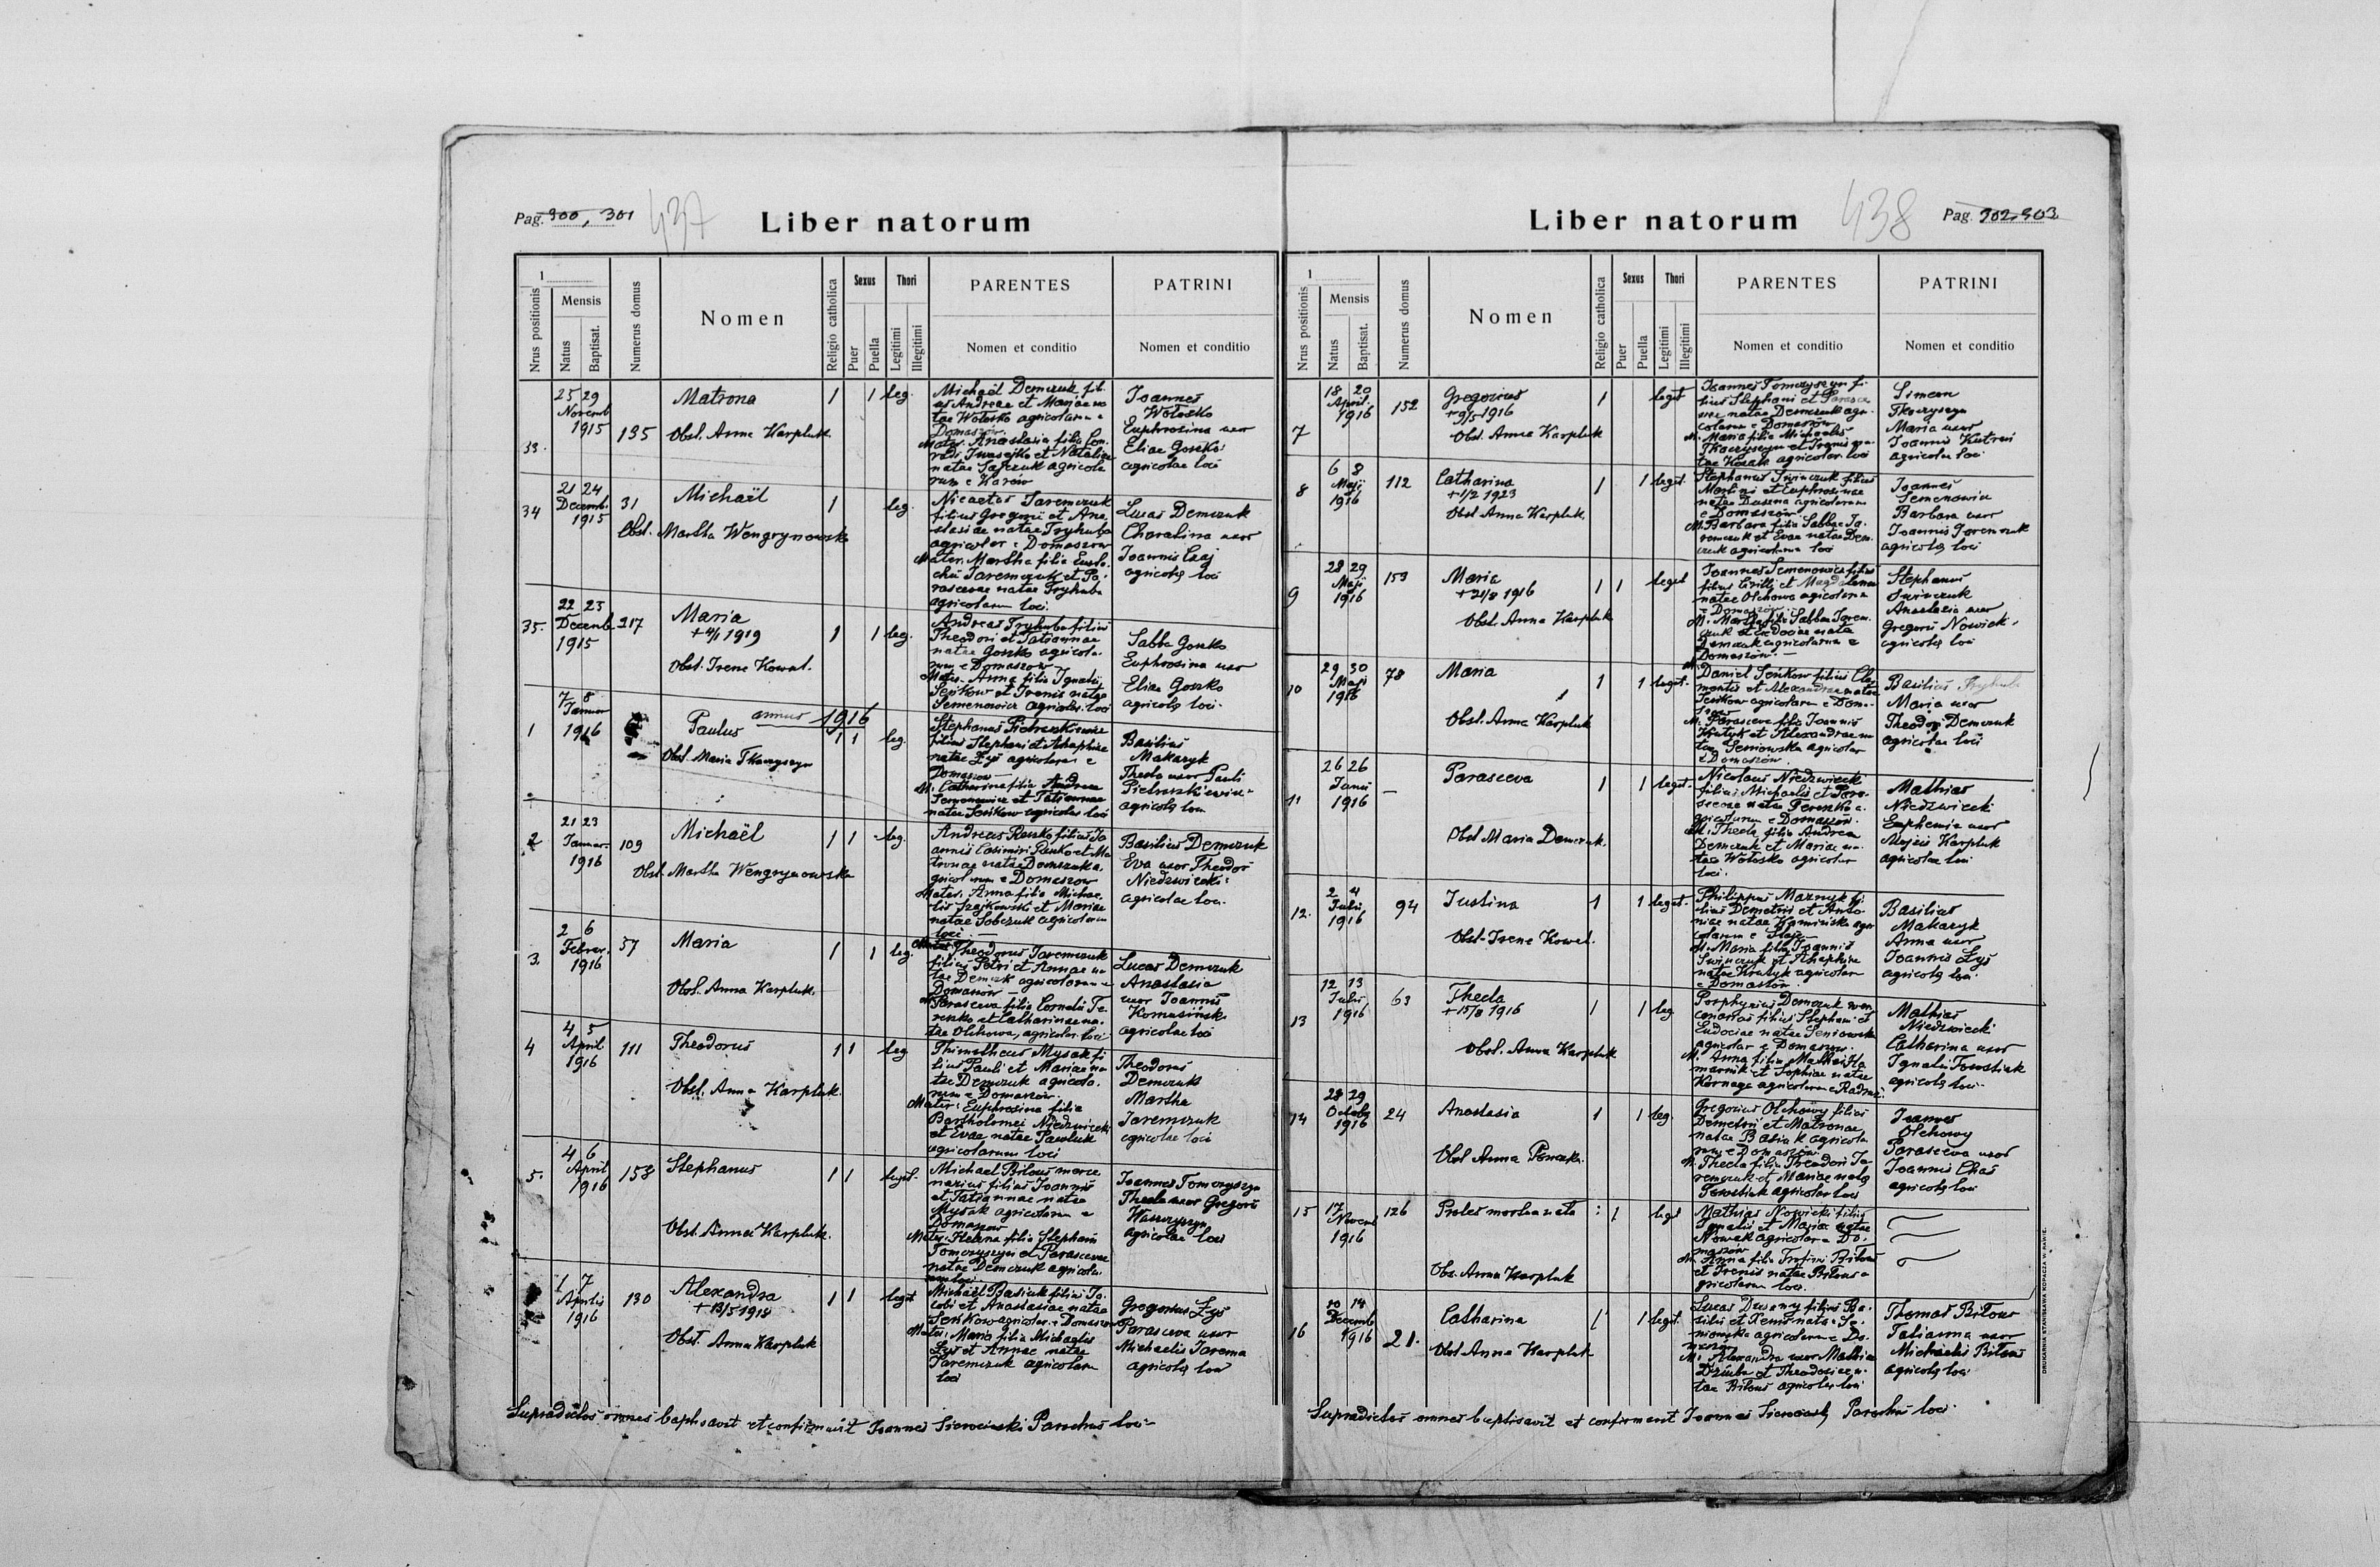 Pag. 300, 301
437
Liber natorum
1
Nrus positionis
Mensis
Natus
Baptisat.
Numerus domus
Nomen
Religio catholica
Sexus
Puer
Puella
Thori
Legitimi
Illegitimi
PARENTES
Nomen et conditio
PATRINI
Nomen et conditio
33.
25 29
Novemb
1915
135
Matrona
Obst. Anna Karpluk
1
1
leg.
Michaël Demczuk fili-
us Andreae et Mariae na
tae Wołosko agricolarum e
Domaszów.
Mater. Anastasia filia Con-
radi Iwasejko et Nataliae
natae Sajczuk agricola
rum e Karów
Joannes
Wołosko
Euphrosina uxor
Eliae Goszko
agricolae loci
34
21 24
Decemb.
1915
31
Michaël
Obst. Martha Wengrynowska
1
leg.
Nicaetas Jaremczuk
filius Gregorii et Ana
stasiae natae Tryhuba
agricolar e Domaszow
Mater. Martha filia Eusta-
chii Jaremczuk et Pa-
rascevae natae Tryhuba
agricolarum loci.
Lucas Demczuk
Charatina uxor
Joannis Czaj
agricolę loci
35.
22 23
Decemb
1915
217
Maria
+ 4/1 1919
Obst. Irene Kowal.
1
1
leg.
Andreas Tryhuba filius
Theodori et Tatiannae
natae Goszko agricola-
rum e Domaszow
Mater. Anna filia Ignatii
Seńkow et Irenis natae
Semenowicz agricolar. loci
Sabba Goszko
Euphrosina uxor
Eliae Goszko
agricolę loci.
annus 1916
1
7 8
Januar
1916
Paulus
Obst. Maria Tkaczyszyn
1 1
leg.
Stephanus Pietruszkiewicz
filius Stephani et Ahaphiae
natae Zyś agricolarum e
Domaszow
M. Catharina filia Andreae
Semenowicz et Tatiannae
natae Seńkow agricolar loci
Basilius
Makaryk
Thecla uxor Pauli
Pietruszkiewicz
agricolę loci
2
21 23
Januar.
1916
109
Michaël
Obst. Martha Wengrynowska
1 1
leg.
Andreas Reszko filius Jo
annis Casimiri Reszko et Ma
tronae natae Demczuk a-
gricolarum e Domaszow
Mater. Anna filia Michae-
lis Szajkowski et Mariae
natae Sobczuk agricolarum
loci
Basilius Demczuk
Eva uxor Theodor
Niedzwiecki
agricolae loci.
3.
2 6
Februar.
1916
37
Maria
Obst. Anna Karpluk.
1
1
leg.
Theodorus Jaremczuk
filius Petri et Annae na
tae Demczuk agricolarum e
Domaszów
M. Parasceva filia Cornelii Te-
reszko et Catharinae na-
tae Olchowa, agricolar loci
Lucas Demczuk
Anastasia
uxor Joannis
Komusińsk.
agricolae loci
4
4 5
April
1916
111
Theodorus
Obst. Anna Karpluk.
1 1
leg
Thimotheus Mysak fi
lius Pauli et Mariae na
tae Demczuk agricola-
rum e Domaszów.
Mater: Euphrosina filia
Bartholomei Niedzwiecki
et Evae natae Pawluk
agricolarum loci
Theodorus
Demczuk
Martha
Jaremczuk
agricolae loci
5.
4 6
April
1916
153
Stephanus
Obst. Anna Karpluk.
1 1
legit.
Michael Bilous merce
narius filius Joannis
et Tatiannae natae
Mysak agricolarum e
Domaszow
Mater. Helena filia Stephani
Tomczyszyn et Parascevae
natae Demczuk agricola-
rum loci
Joannes Tomczyszyn
Thecla uxor Gregorii
Waszczyszyn
agricolae loci
1 7
Aprilis
1916
130
Alexandra
+ 13/5 1918
Obst. Anna Karpluk
1 1
legit
Michaël Basiuk filius Ja-
cobi et Anastasiae natae
Seńkow agricolar. e Domaszow
Mater: Maria filia Michaelis
Zyś et Annae natae
Jaremczuk agricolarum
loci
Gregorius Zyś
Parasceva uxor
Michaelis Jarema
agricolę loci
Supradictos omnes baptisavit et confirmavit Joannes Sierociński Parochus loci
438
Liber natorum
Pag. 302, 303
1
Nrus positionis
Mensis
Natus
Baptisat.
Numerus domus
Nomen
Religio catholica
Sexus
Puer
Puella
Thori
Legitimi
Illegitimi
PARENTES
Nomen et conditio
PATRINI
Nomen et conditio
7
18 20
April.
1916
152
Gregorius
+ 9/5 1916
Obst. Anna Karpluk
1
legit
Joannes Tomczyszyn fi-
lius Stephani et Parasce
vae natae Demczuk agri-
colarum e Domaszów
M. Maria filia Michaelis
Tkaczyszyn et Irenis na-
tae Kozak agricolar. loci
Simeon
Tkaczyszyn
Maria uxor
Joannis Kutreń
agricolae loci
8
6 8
Maji
1916
112
Catharina
+ 1/2 1923
Obst Anna Karpluk.
1
1
legit.
Stephanus Swinczuk filius
Martini et Euphrosinae
natae Duszna agricolarum
e Domaszów
M. Barbara filia Sabbae Ja-
remczuk et Evae natae Dem-
czuk agricolarum loci
Joannes
Semenowicz
Barbara uxor
Joannis Jaremczuk
agricolę loci
9
28 29
Maji
1916
153
Maria
+ 21/8 1916
Obst. Anna Karpluk
1 1
legit
Joannes Semenowicz filius
filius Cirilli et Magdalenae
natae Olchowa agricolarum
e Domaszów.
M. Martha filia Sabbae Jarem-
czuk et Eudociae natae
Demczuk agricolarum e
Domaszów.
Stephanus
Swinczuk
Anastasia uxor
Gregorii Nowick.
agricolę loci
10
29 30
Maji
1916
78
Maria
Obst. Anna Karpluk
1
1
legit.
Daniel Seńkow filius Cle
mentis et Alexandrae natae
Seńkow agricolarum e Doma-
szow
M. Parasceva filia Joannis
Kratyk et Alexandrae na
tae Seniowska agricolar
e Domaszów.
Basilius Tryhuba
Maria uxor
Theodori Demczuk
agricolae loci
11
26 26
Junii
1916
—
Parasceva
Obst Maria Demczuk.
1
1
legit.
Nicolaus Niedzwiecki
filius Michaelis et Para-
scevae natae Tereszko a-
gricolarum e Domaszów.
M. Thecla filia Andreae
Demczuk et Mariae na-
tae Wołosko agricolar
loci.
Mathias
Niedzwiecki
Euphemia uxor
Moijsis Karpluk
agricolae loci
12.
2 4
Julii
1916
94
Justina
Obst. Irene Kowal.
1
1
legit.
Philippus Maznyk fi
lius Demetrii et Anto
niae natae Kaminska agri
colarum e Staje
M. Maria filia Joannis
Swinczuk et Ahaphiae
natae Kratyk agricolar
e Domaszów.
Basilius
Makaryk
Anna uxor
Joannis Zyś
agricolę loci.
13
12 13
Julii
1916
63
Thecla
+ 15/8 1916
Obst. Anna Karpluk
1
1
leg
Porphyrius Demczuk mer
cenarius filius Stephani et
Eudociae natae Seniowska
agricolar e Domaszow.
M. Anna filia Mathei Ha
marnik et Sophiae natae
Kornaga agricolarum e Radruż.
Mathias
Niedzwiecki
Catharina uxor
Ignatii Towstiak
agricolę loci.
14
28 29
Octobr
1916
24
Anastasia
Obst Anna
1
1
leg.
Gregorius Olchowy filius
Demetrii et Matronae
natae Basiuk agricola
rum e Domaszów.
M. Thecla filia Theodori Ja-
remczuk et Mariae natae
Towstiak agricolar loci
Joannes
Olchowy
Parasceva uxor
Joannis
agricolę loci
15
17
Novemb
1916
126
Proles mortua nata
Obs. Anna Karpluk
1
legit
Mathias Nowicki filius
Ignatii et Mariae natae
Nowak agricolarum e Do-
maszów
M. Anna filia Trofimi Bilous
et Irenis natae Bilous a-
gricolarum loci.
16
10 14
Decemb
1916
21.
Catharina
Obst Anna Karpluk
1
1
legit.
Lucas Duszny filius Ba-
silii et Xeniae natae Se-
niowska agricolarum e Do-
maszow
M. Alexandra uxor Mathiae
Dziuba et Theodosiae na-
tae Bilous agricolar loci
Thomas Bilous
Tatianna uxor
Michaelis Bilous
agricolę loci
Supradictos omnes baptisavit et confirmavit Joannes Sierociński Parochus loci.
DRUKARNIA STANISŁAWA KOPACZA W RAWIE.